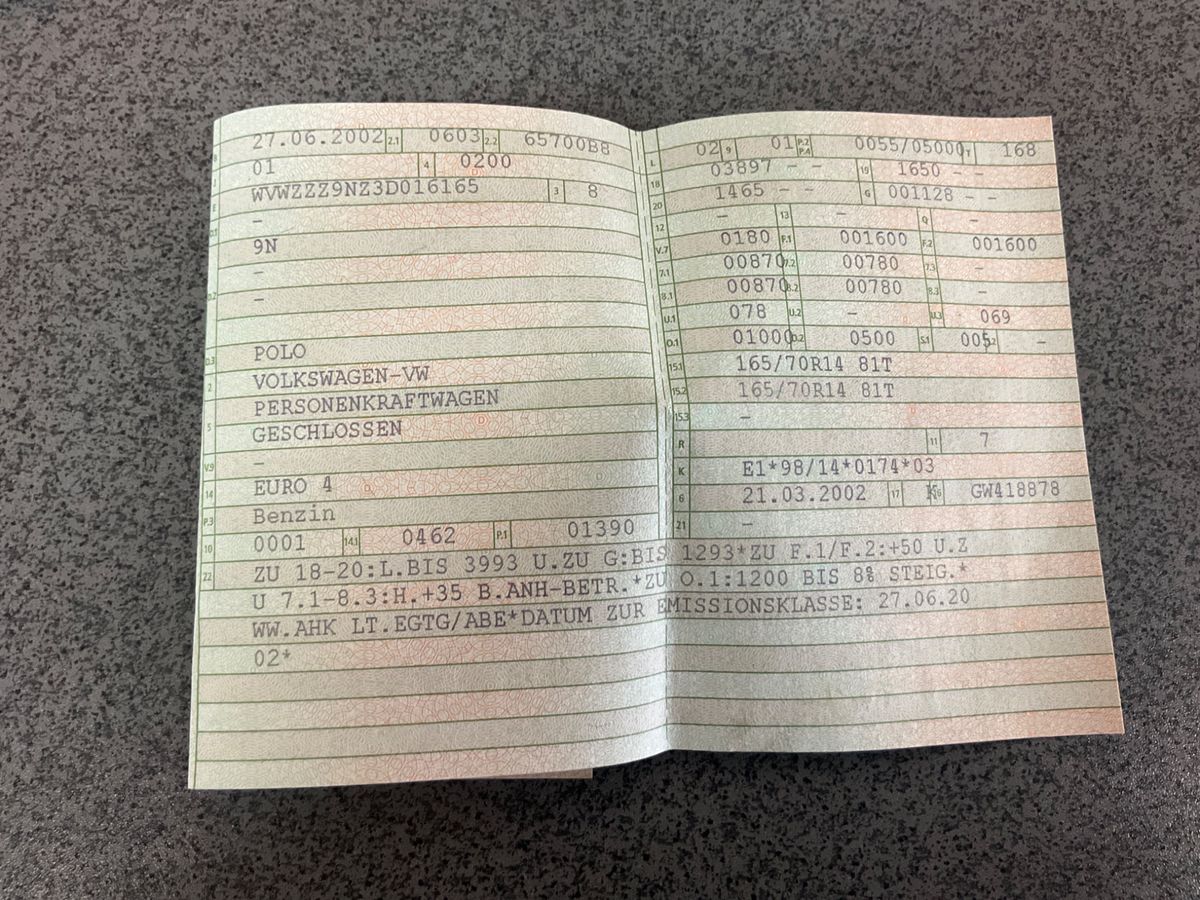 27.06.2002 2.1 0603 2.2 65700B8
01 4 0200
WVWZZZ9NZ3D016165 3 8
–
9N
–
–
D.3 POLO
2 VOLKSWAGEN-VW
PERSONENKRAFTWAGEN
5 GESCHLOSSEN
V.9 –
14 EURO 4
P.3 Benzin
10 0001 14.1 0462 P.1 01390
L 02 9 01 P.2 P.4 0055/05000 T 168
18 03897 – – 19 1650 – –
20 1465 – – G 001128 – –
12 – 13 – Q –
V.7 0180 F.1 001600 F.2 001600
7.1 00870 7.2 00780 7.3 –
8.1 00870 8.2 00780 8.3 –
U.1 078 U.2 – U.3 069
O.1 01000 O.2 0500 S.1 005 S.2 –
15.1 165/70R14 81T
15.2 165/70R14 81T
15.3 –
R 11 7
K E1*98/14*0174*03
6 21.03.2002 17 K 16 GW418878
21 –
22 ZU 18-20:L.BIS 3993 U.ZU G:BIS 1293*ZU F.1/F.2:+50 U.Z
U 7.1-8.3:H.+35 B.ANH-BETR.*ZU O.1:1200 BIS 8% STEIG.*
WW.AHK LT.EGTG/ABE*DATUM ZUR EMISSIONSKLASSE: 27.06.20
02*